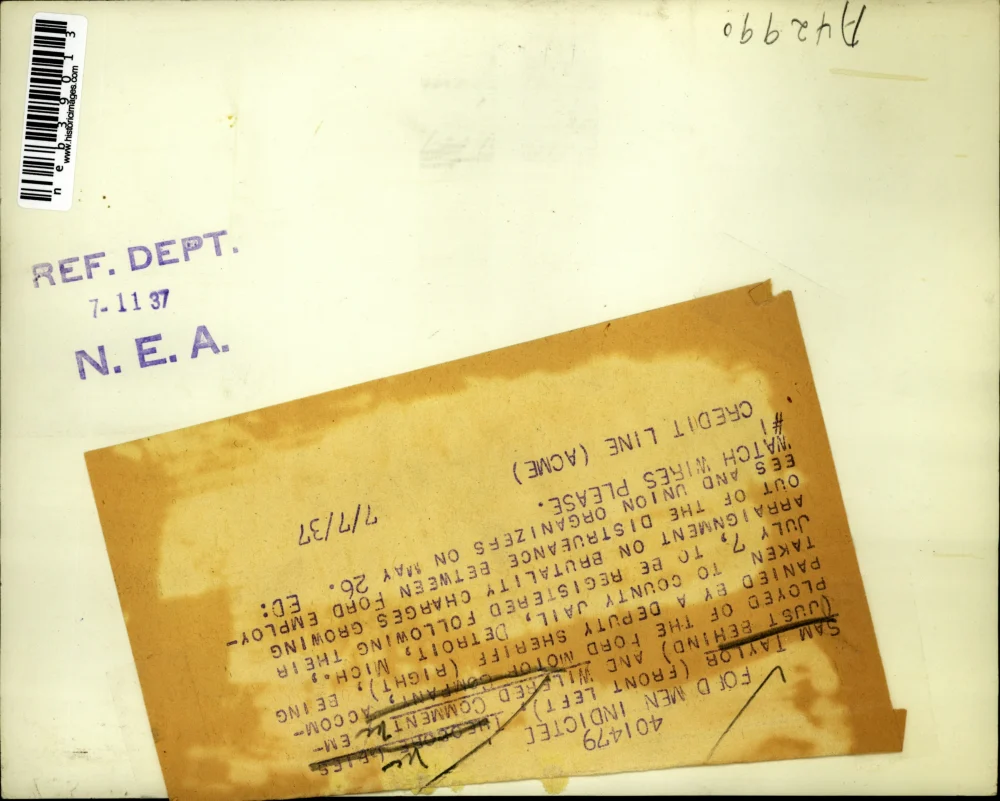 neb39013
www.historicimages.com
A42990
REF. DEPT.
7-11 37
N. E. A.
401479
FORD MEN INDICTED
SAM TAYLOR (FRONT LEFT)
(JUST BEHIND) AND WILFRED COMMENT, EM-
PLOYED OF THE FORD MOTOR COMPANY, ACCOM-
PANIED BY A DEPUTY SHERIFF (RIGHT), BEING
TAKEN TO COUNTY JAIL, DETROIT, MICH.,
JULY 7, TO BE REGISTERED FOLLOWING THEIR
ARRAIGNMENT ON BRUTALITY CHARGES GROWING
OUT OF THE DISTRUEANCE BETWEEN FORD EMPLOY-
EES AND UNION ORGANIZERS ON MAY 26. ED:
WATCH WIRES PLEASE.
#1
CREDIT LINE (ACME) 7/7/37